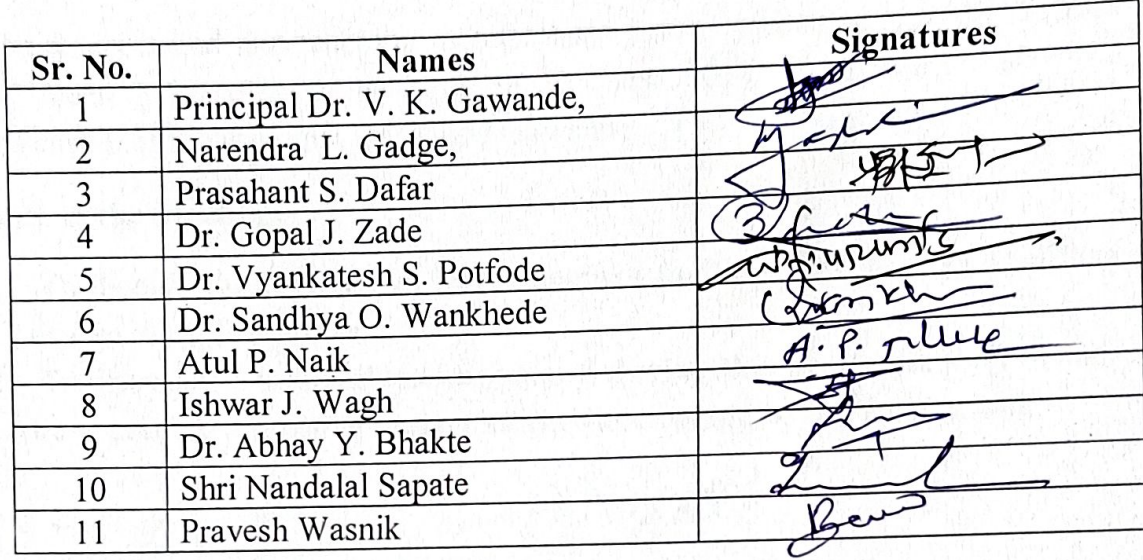 Sr. No. Names Signatures
1 Principal Dr. V. K. Gawande,
2 Narendra L. Gadge,
3 Prasahant S. Dafar
4 Dr. Gopal J. Zade
5 Dr. Vyankatesh S. Potfode
6 Dr. Sandhya O. Wankhede
7 Atul P. Naik A. P.
8 Ishwar J. Wagh
9 Dr. Abhay Y. Bhakte
10 Shri Nandalal Sapate
11 Pravesh Wasnik